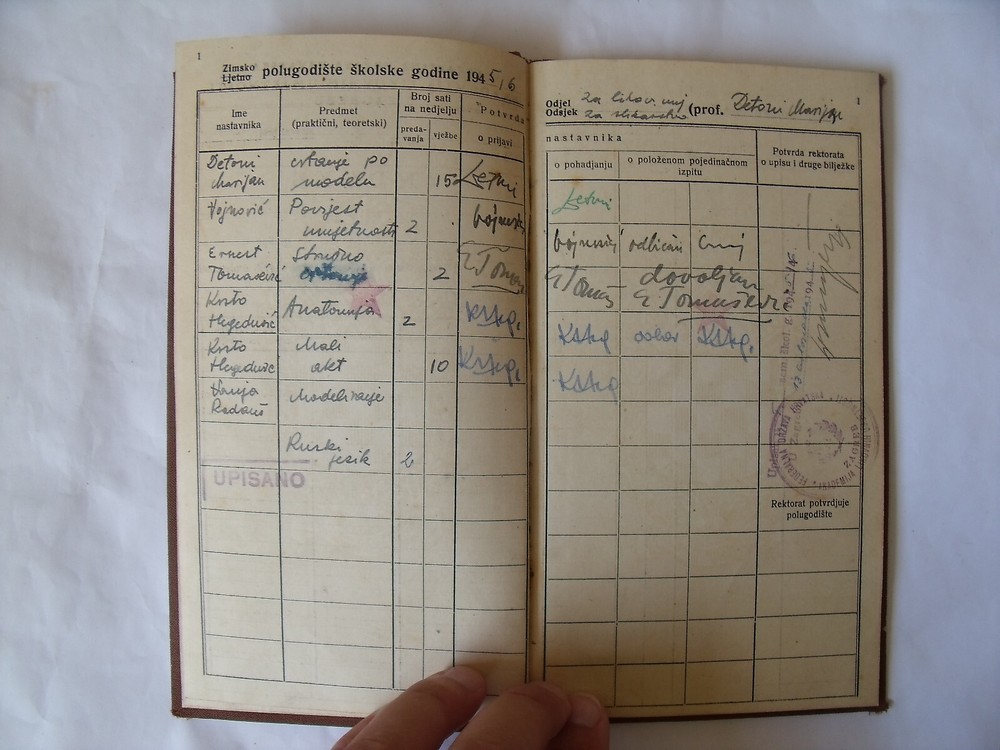 1
Zimsko
Ljetno polugodište školske godine 1945/6
Ime nastavnika
Predmet
(praktični, teoretski)
Broj sati
na nedjelju
preda-
vanja
vježbe
Potvrda
o prijavi
Detoni
Marijan
crtanje po
modelu
15
Vojnović
Povijest
umjetnosti
2
Ernest
Tomašević
Stručno
crtanje
2
ETomaš
Krsto
Hegedušić
Anatomija
2
KsHg.
Krsto
Hegedušić
Mali
akt
10
KsHg.
Vanja
Radauš
Modeliranje
Ruski
jezik
2
UPISANO
1
Odjel
Odsjek
za slikarstvo
(prof. Detoni Marijan
nastavnika
o pohađanju
o položenom pojedinačnom
izpitu
Potvrda rektorata
o upisu i druge bilježke
odličan
dovoljan
E Tomašević
dobar
Rektorat potvrdjuje
polugodište